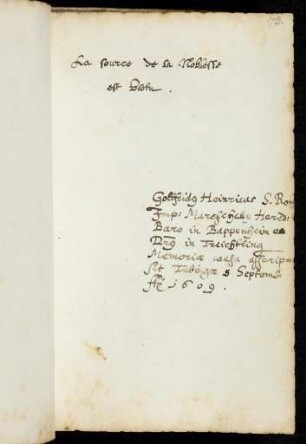 73.
La source de la Noblesse
est Vertu.
Gottfridg Heinricus S. Rom
Imp: Mareschalc Haered:
Baro in Bappenheim
Dng in Treichtling
Memoriae causa asscrip
sit Tubingae 8 Septemb
Ao 1609.